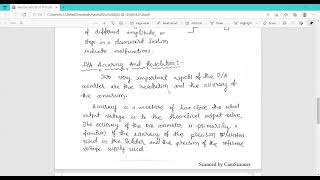 of different amplitude, or
step in a downward section
indicate malfunctions.
D/A Accuracy And Resolution:-
Two very important aspects of the D/A
converter are the resolution and the accuracy of
the conversion.
Accuracy is a measure of how close the actual
output voltage is to the theoretical output value.
The accuracy of the D/A converter is primarily, a
function of the accuracy of the precision resistor
used in the ladder, and the precision of the reference
voltage supply used.
Scanned by CamScanner